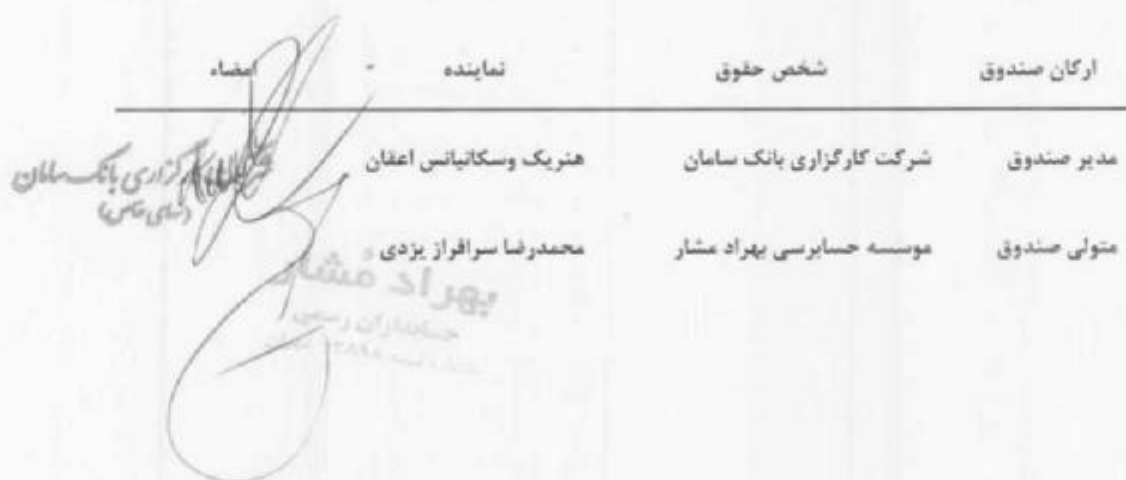 ارکان صندوق شخص حقوق نماینده - امضاء
مدیر صندوق شرکت کارگزاری بانک سامان هنریک وسکانیانس اعقان
کارگزاری بانک سامان
(سهامی خاص)
متولی صندوق موسسه حسابرسی بهراد مشار محمدرضا سرافراز یزدی
بهراد مشار
حسابداران رسمی